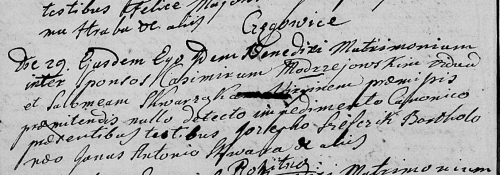 testibus Felice
nu Straba et aliis
Cręgowice
Die 29. Ejusdem Ego Idem Benedixi Matrimonium
inter sponsos Casimirum Modrzejowskim viduum
et Salomeam Skwarząką Virginem præmissis
præmittendis nullo detecto impedimento Canonico
præsentibus testibus Josepho Szefczik Bartholo
mæo Janas Antonio Skwara et aliis
Rokitno
Matrimonium